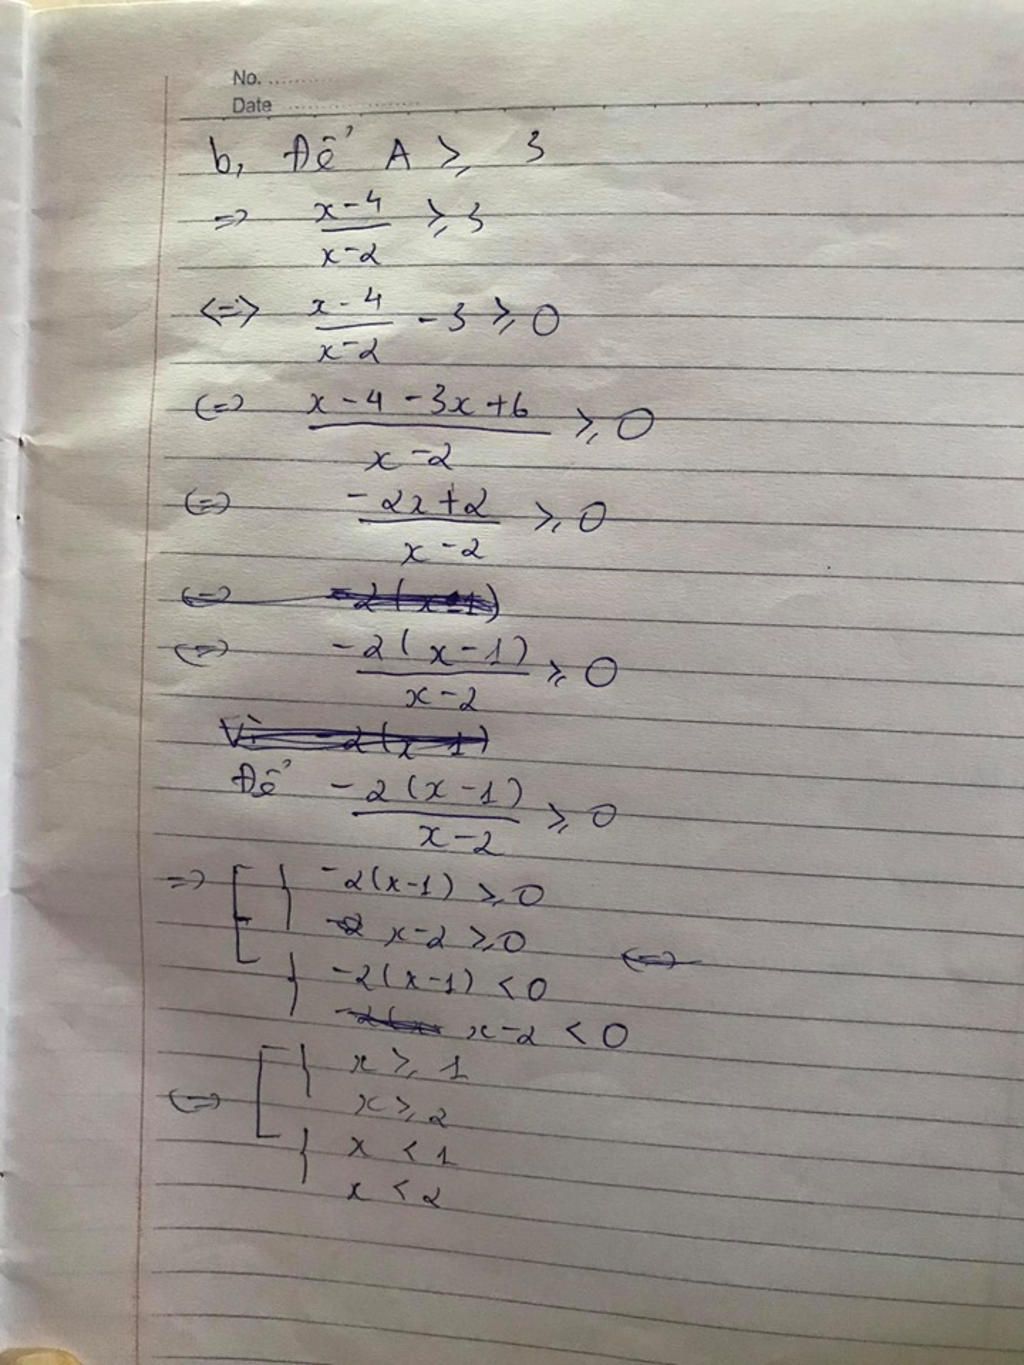 No.
Date
b, Để A ≥ 3
=> \frac{x-4}{x-2} ≥ 3
<=> \frac{x-4}{x-2} - 3 ≥ 0
<=> \frac{x-4-3x+6}{x-2} ≥ 0
<=> \frac{-2x+2}{x-2} ≥ 0
<=> -2(x-1)
<=> \frac{-2(x-1)}{x-2} ≥ 0
Vì -2(x-1)
Để \frac{-2(x-1)}{x-2} ≥ 0
=> [ { -2(x-1) ≥ 0
-2 x-2 ≥ 0 <=>
{ -2(x-1) < 0
-2(x x-2 < 0
<=> [ { x ≥ 1
x ≥ 2
{ x < 1
x < 2